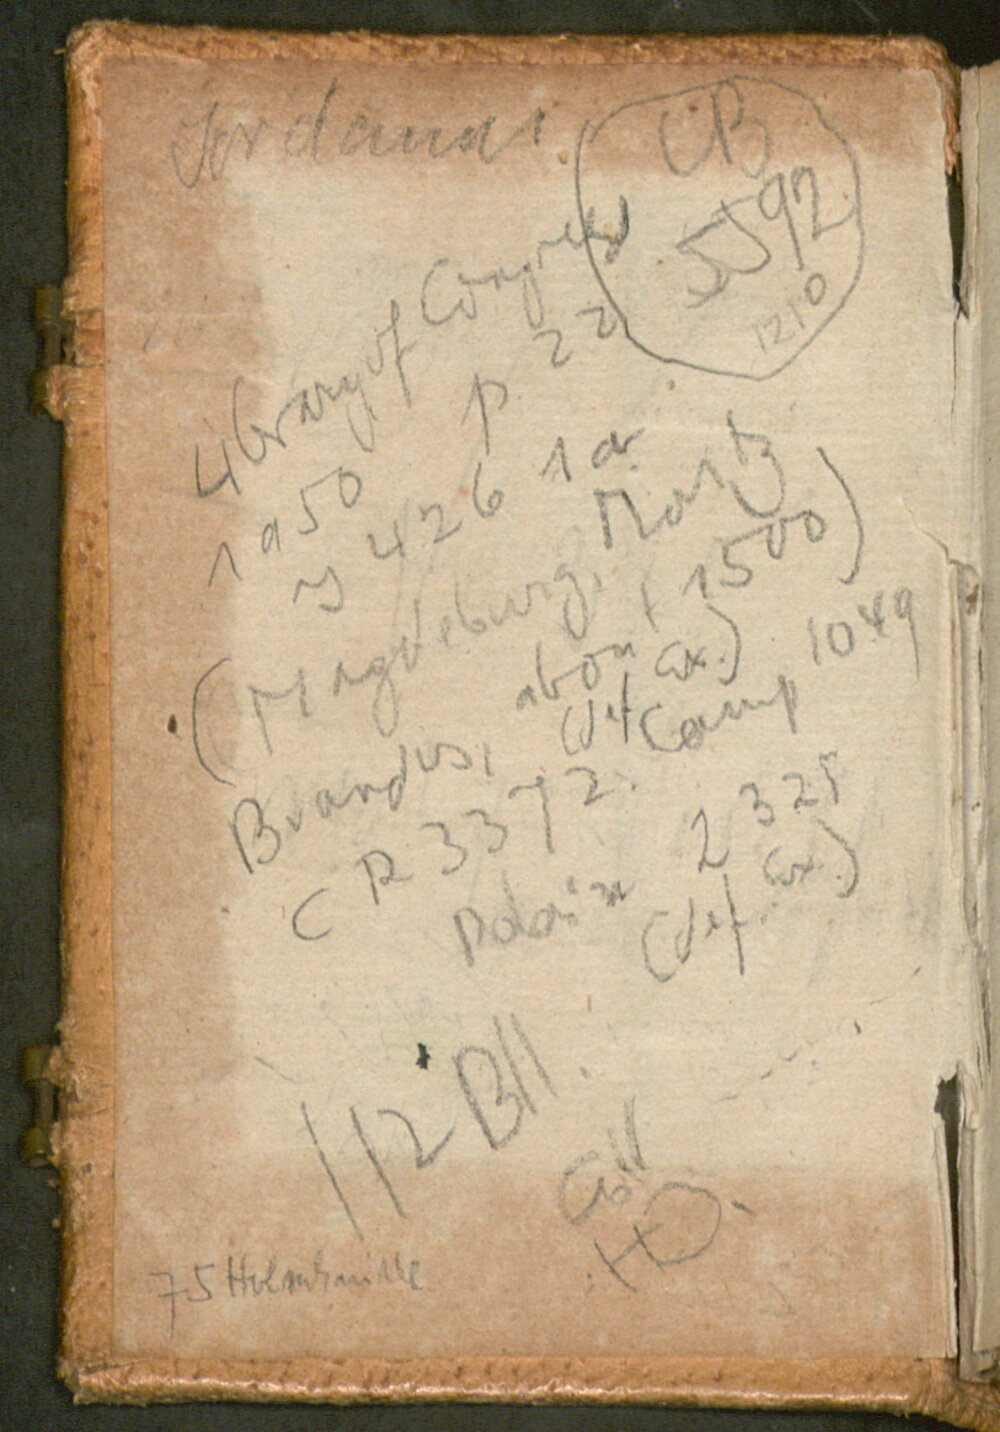 Jordanus
CB
5592
1210
Library of Congress
1950 p. 22
426 1a
(Magdeburg, Moritz
Brandis, about 1500)
(def. Ex.)
CR 3372. Camp 1049
Polain 2325
(def. Ex.)
112 Bll.
Coll
75 Holzschnitte